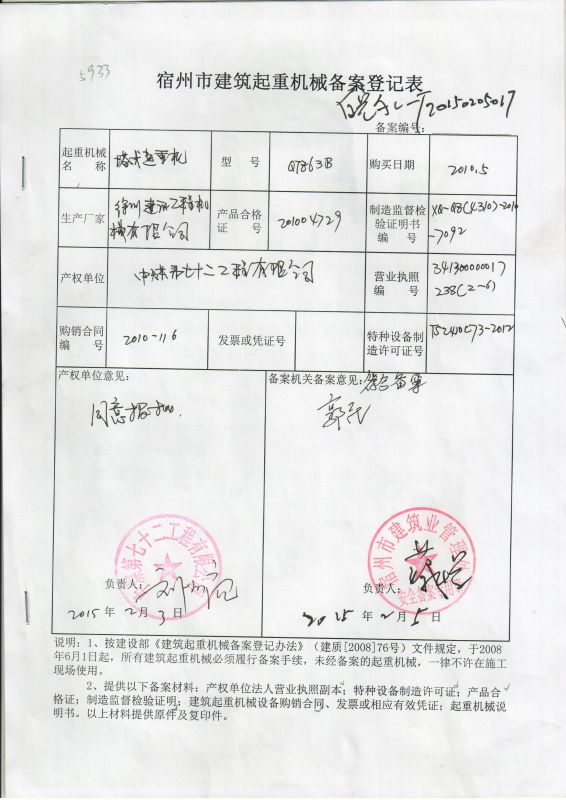 5933
宿州市建筑起重机械备案登记表
20150205017
备案编号:
起重机械名 称 塔式起重机 型 号 QTZ63B 购买日期 2010.5
生产厂家 徐州建机工程机械有限公司 产品合格证 号 201004729 制造监督检验证明书编 号 -7092
产权单位 中煤第七十二工程有限公司 营业执照编 号 341300000017238(2-6)
购销合同编 号 2010-116 发票或凭证号 特种设备制造许可证号 TS2410C73-2012
产权单位意见:
同意
备案机关备案意见: 备案
第七十二工程有限公司
宿州市建筑业管理
安全备案专用章
负责人:
2015年2月3日
负责人:
2015年2月5日
说明:1、按建设部《建筑起重机械备案登记办法》(建质[2008]76号)文件规定,于2008
年6月1日起,所有建筑起重机械必须履行备案手续,未经备案的起重机械,一律不许在施工
现场使用。
2、提供以下备案材料:产权单位法人营业执照副本;特种设备制造许可证;产品合
格证;制造监督检验证明;建筑起重机械设备购销合同、发票或相应有效凭证;起重机械说
明书。以上材料提供原件及复印件。